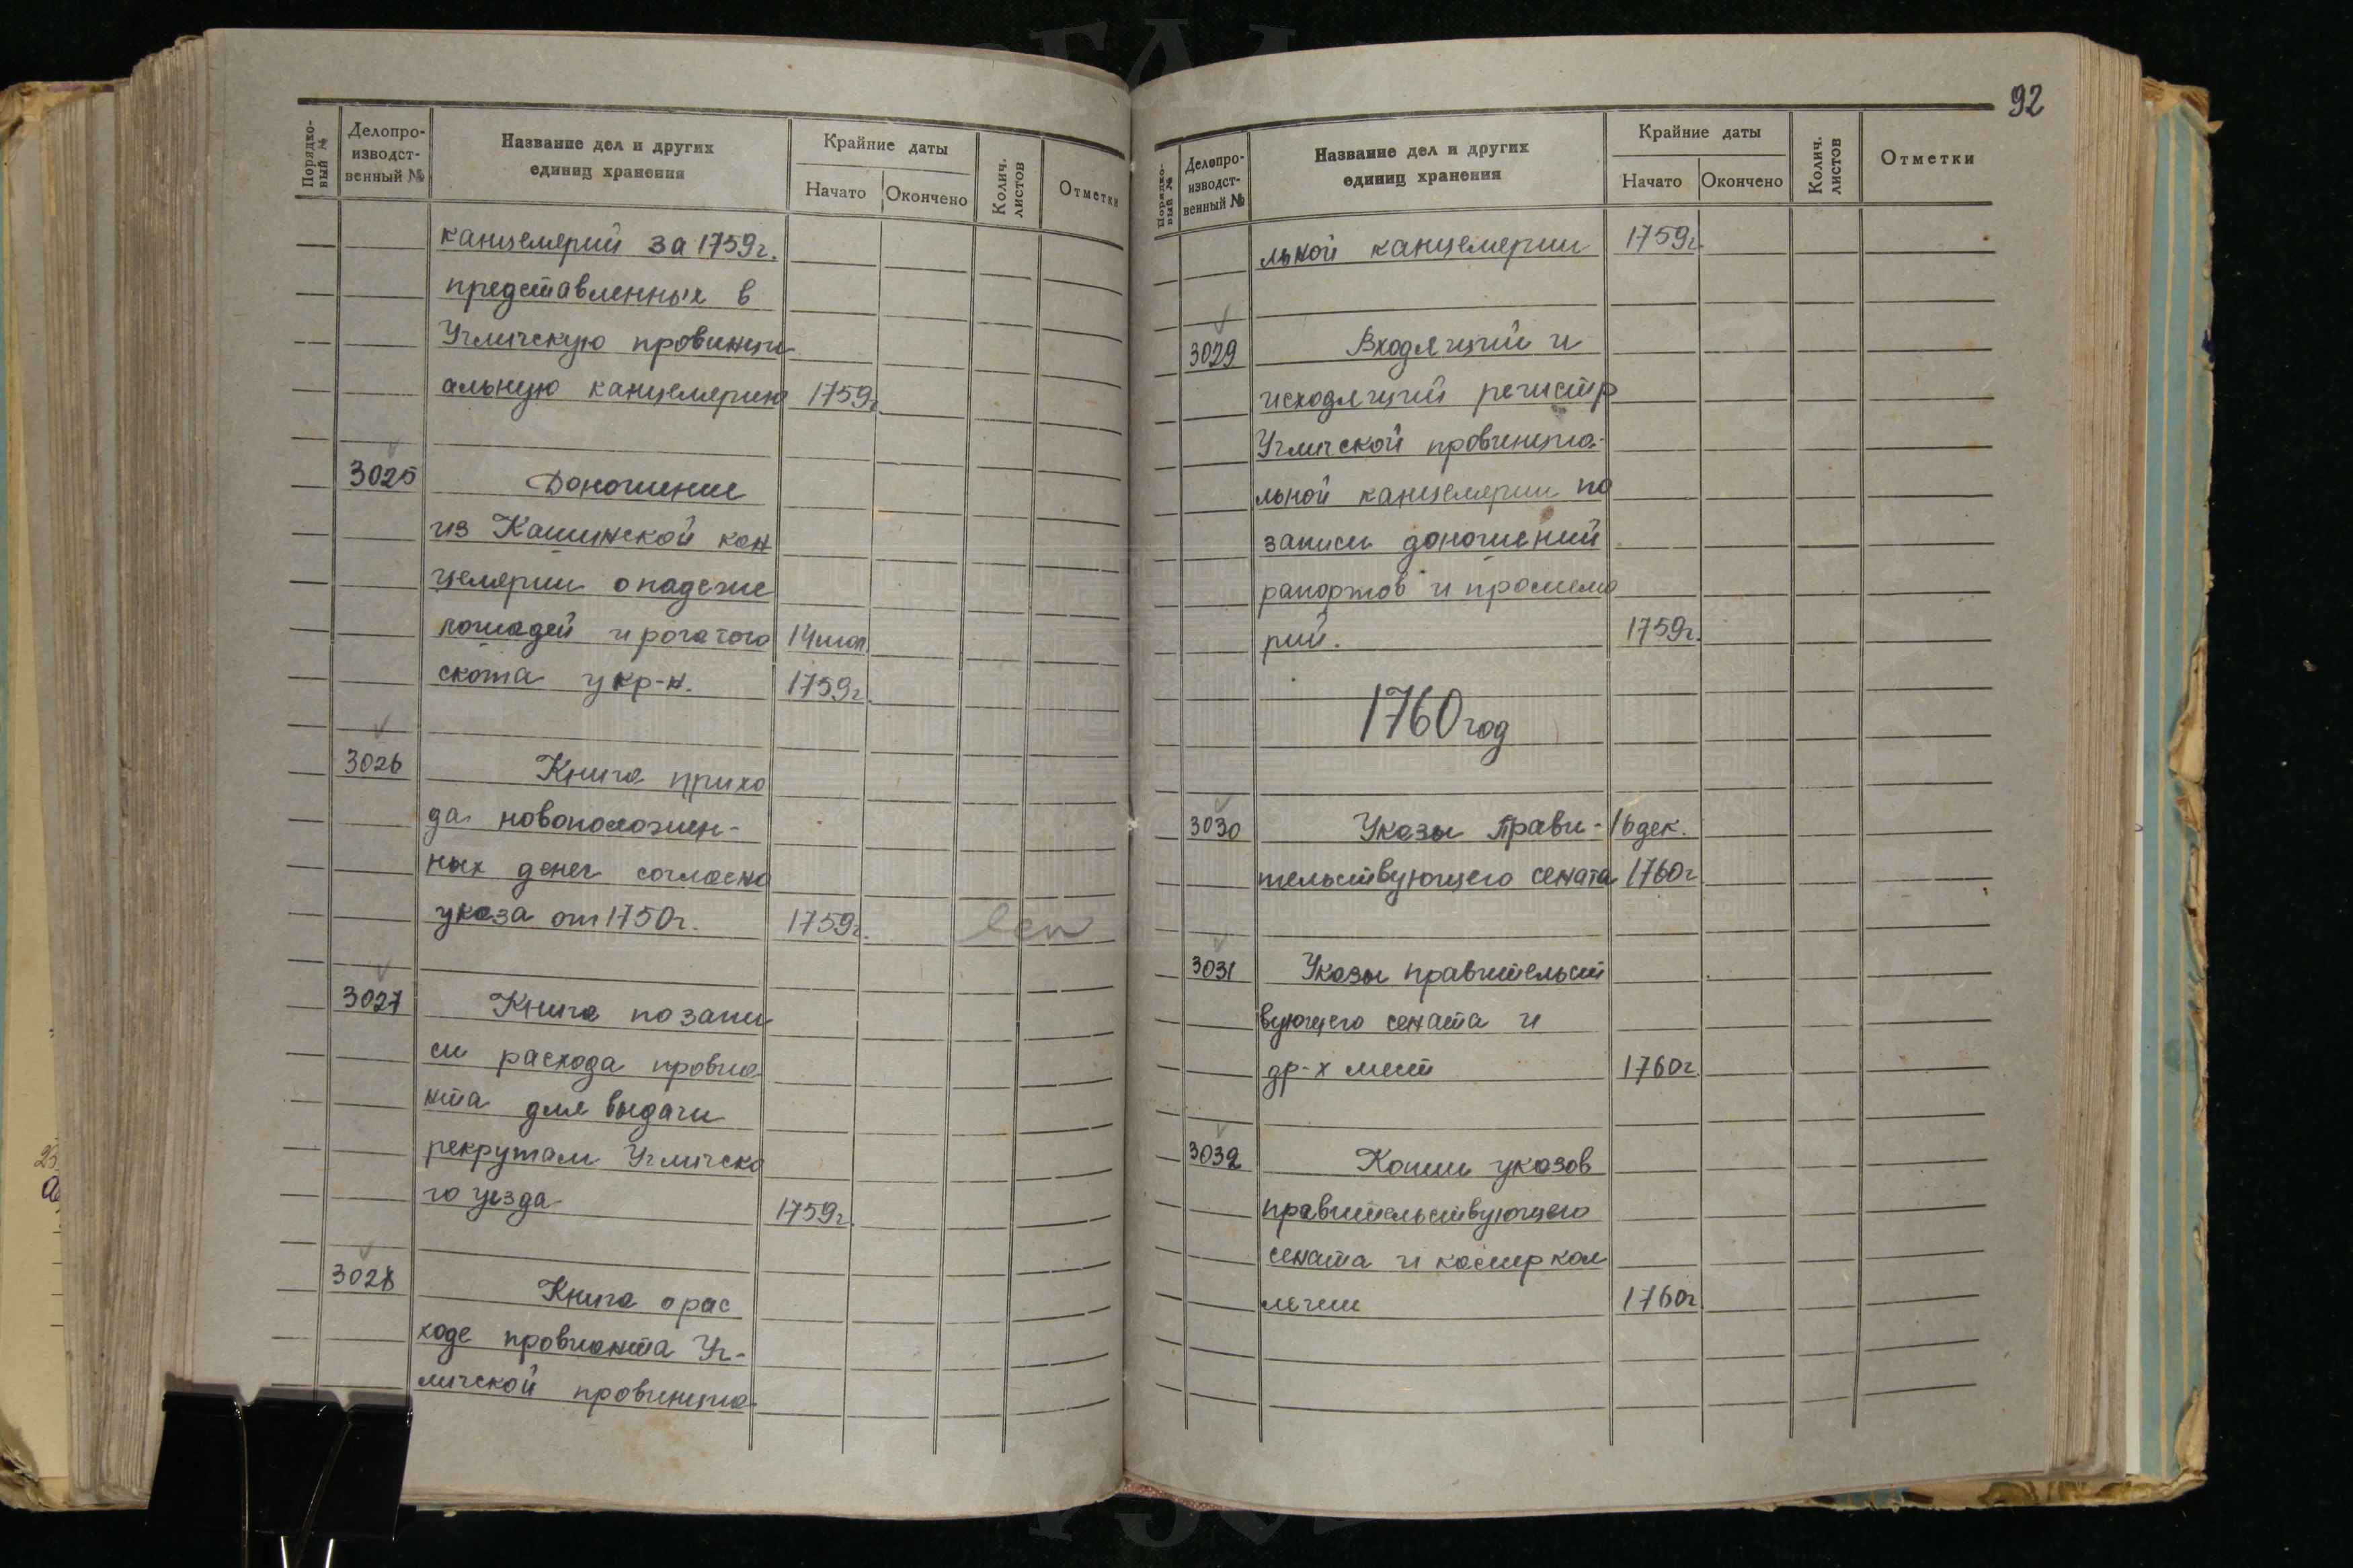 Порядко-
вый №
Делопро-
изводст-
венный №
Название дел и других
единиц хранения
Крайние даты
Начато
Окончено
Колич.
листов
Отметки
канцелярий за 1759г.
представленных в
Угличскую провинци
альную канцелярию 1759г
3025 Доношение
из Кашинской кан
целярии о падеже
лошадей и рогатого 14 мая
скота у кр-н. 1759г.
3026 Книга прихо
да новоположен-
ных денег согласно
указа от 1750г. 1759г.
3027 Книга по запи
си расхода провиа
нта для выдачи
рекрутам Угличско
го уезда 1759г.
3028 Книга о рас
ходе провианта Уг-
личской провинциа-
92
Порядко-
вый №
Делопро-
изводст-
венный №
Название дел и других
единиц хранения
Крайние даты
Начато
Окончено
Колич.
листов
Отметки
льной канцелярии 1759г.
3029 Входящий и
исходящий регистр
Угличской провинциа-
льной канцелярии по
записи доношений
рапортов и промемо
рий. 1759г.
1760 год
3030 Указы Прави- 16 дек.
тельствующего сената 1760г
3031 Указы правительст
вующего сената и
др-х мест 1760г.
3032 Копии указов
правительствующего
сената и камер кол
легии 1760г.